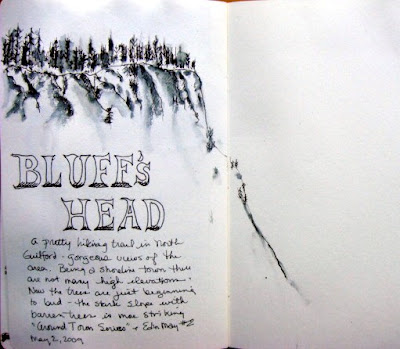 BLUFF'S
HEAD
a pretty hiking trail in North
Guilford - gorgeous views of the
area. Being a shoreline town there
are not many "high elevations"
Now the trees are just beginning
to bud - the stark slope with
barren trees is more striking
"Around Town Series" + Edm May #2
May 2, 2009